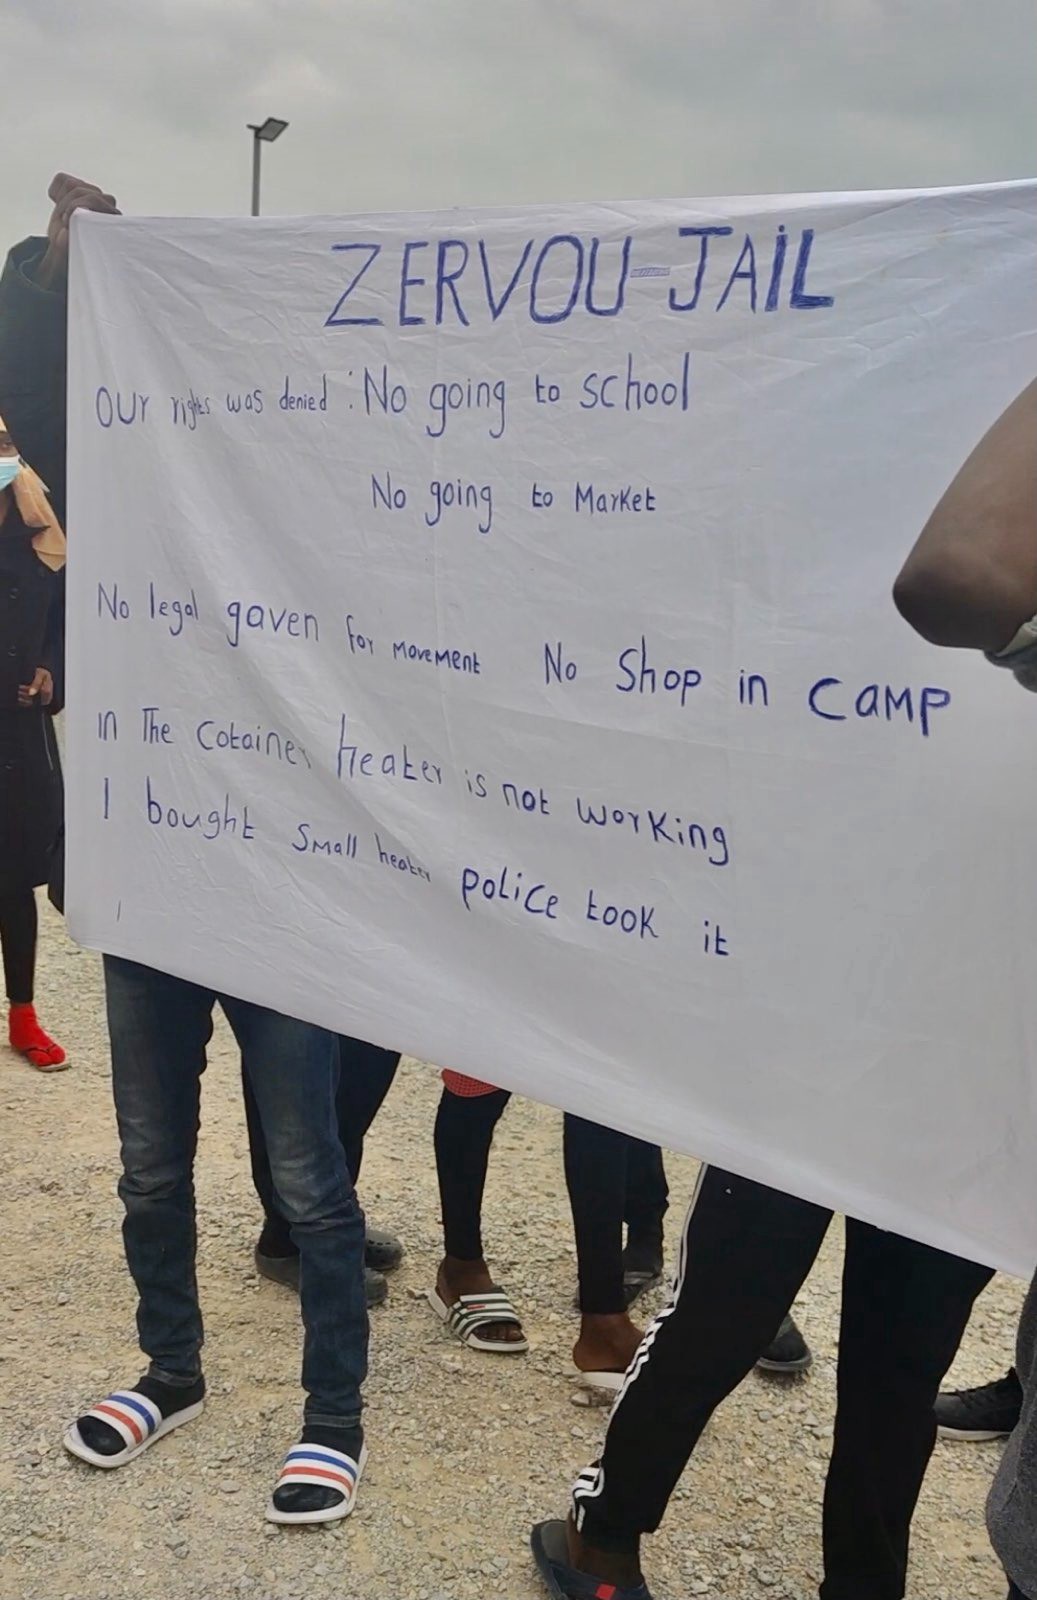 ZERVOU-JAIL
OUr rights was denied : No going to school
No going to Market
No legal gaven for movement No Shop in camp
in The cotainer heater is not working
I bought small heater police took it